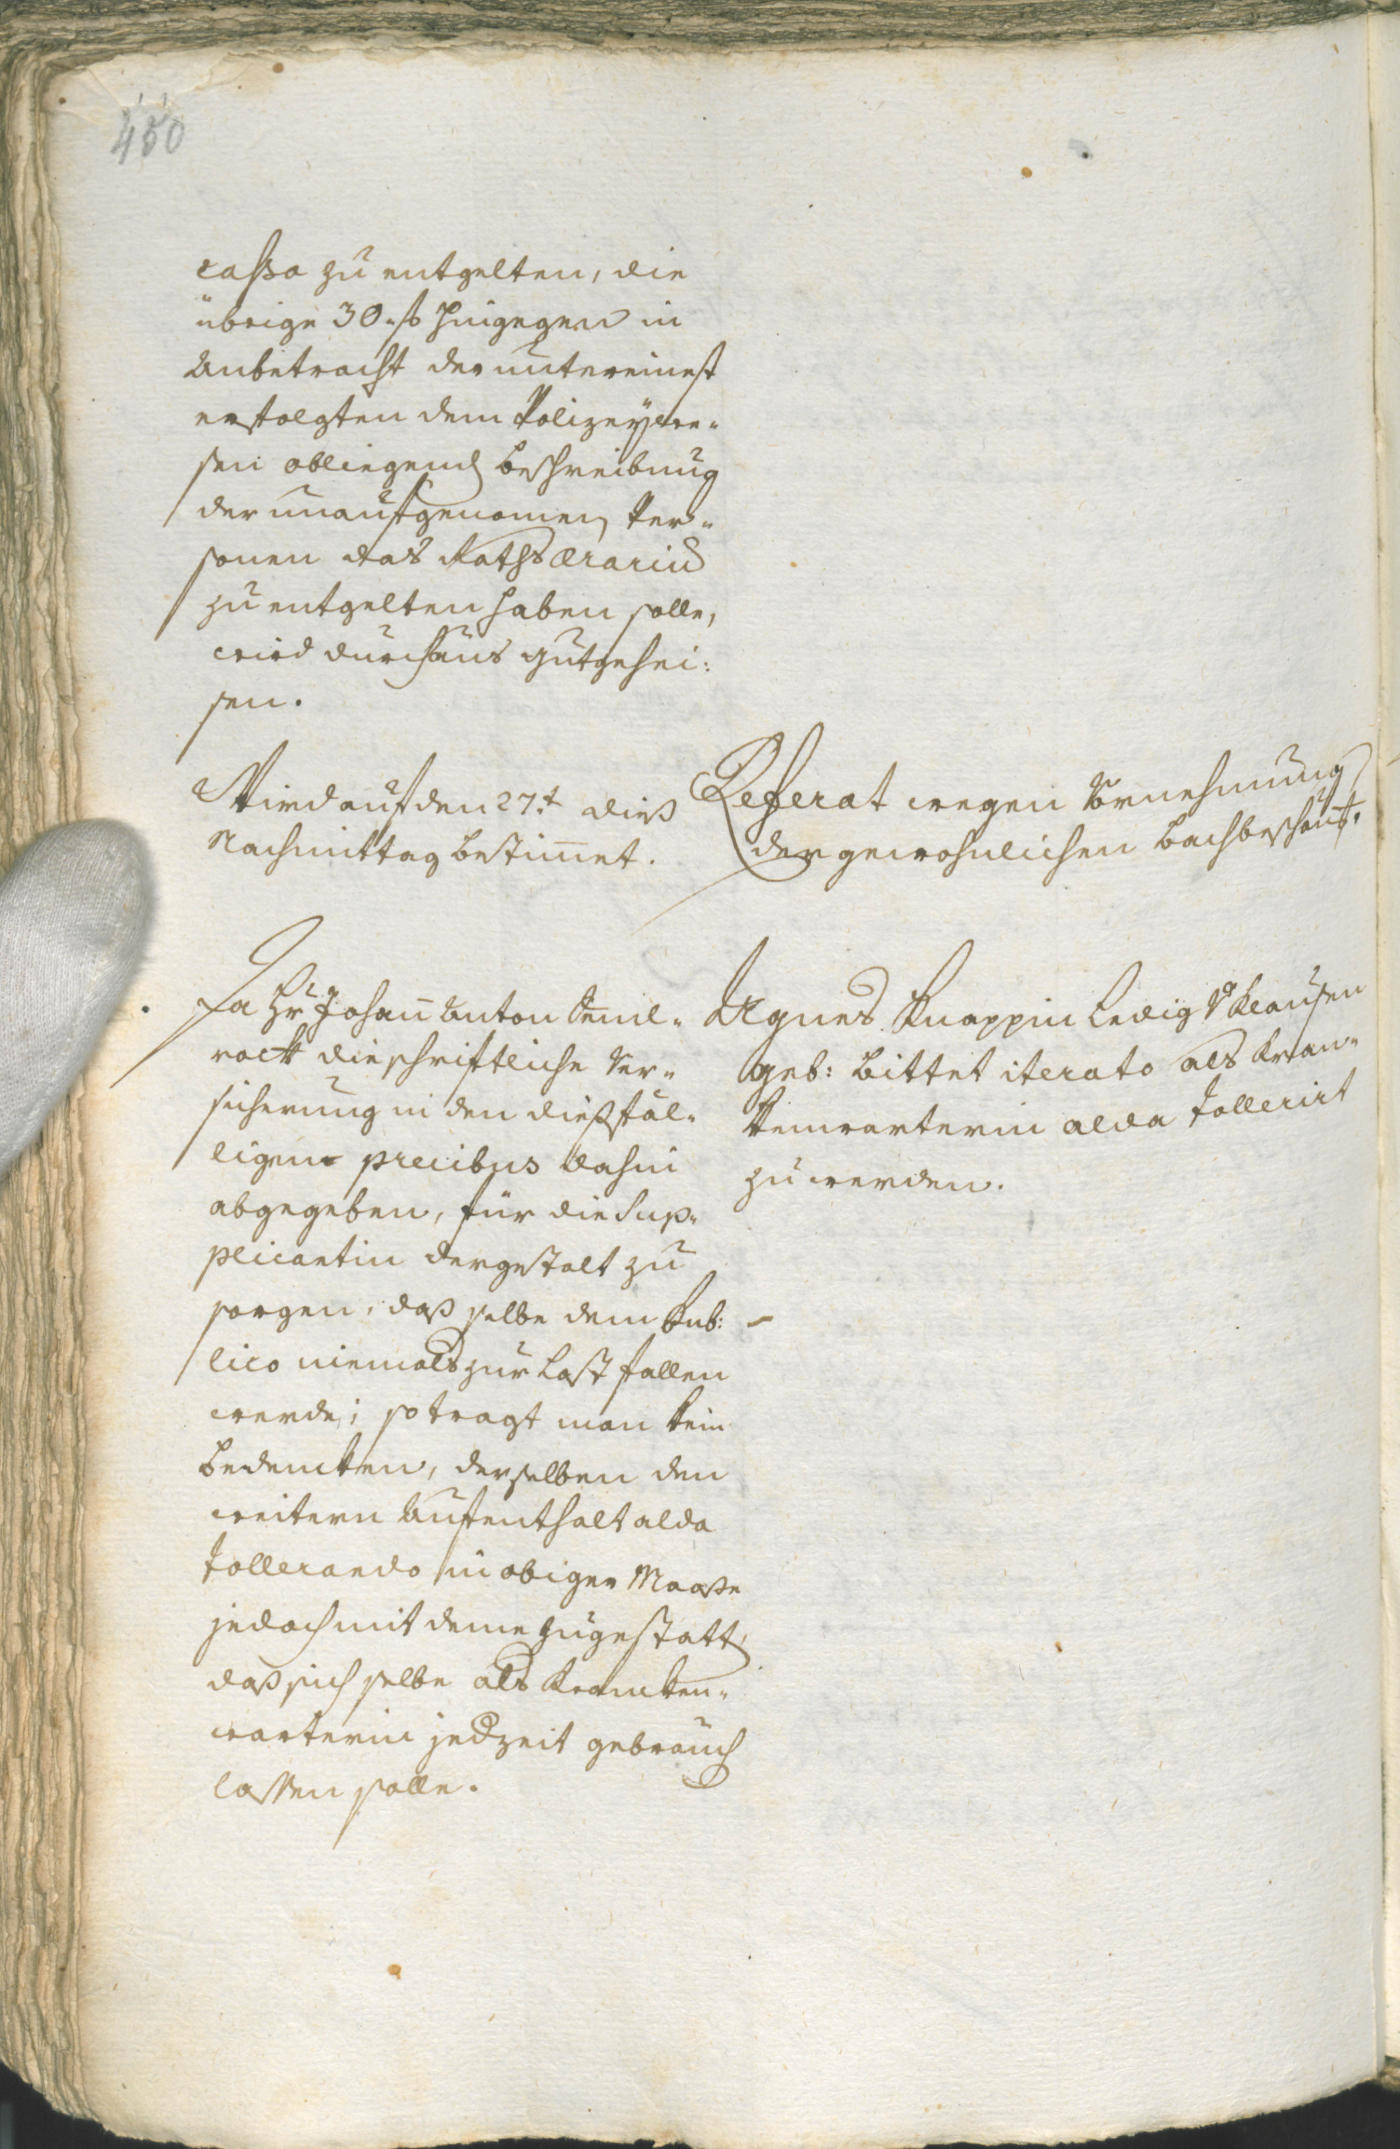 450
cassa zu entgelten, die
übrige 30 f hingegen in
Anbetracht der untereinest
erfolgten dem Polizeywe-
sen obliegend Beschreibung
der unaufgenomenen Per-
sonen das Raths Ærariū
zu entgelten haben solle,
wird durchaus gutgehei:
sen.
Wird auf den 27.t dies
Nachmittag bestim̄et.
Referat wegen Vornehmung
der gewohnlichen Bachbeschaut.
Da Hr Johan̄ Anton
rock die schriftliche Ver-
sicherung in den diesfäl-
ligen precibus dahin
abgegeben, für die Sup-
plicantin dergestalt zu
sorgen, daß selbe dem Pub:
lico niemals zur Last fallen
werde; so tragt man kein
Bedencken, derselben den
weitern Aufenthalt alda
tollerando in obiger Maaße
jedoch mit deme zugestatt,
daß sich selbe als Krancken-
warterin jedzeit gebrauch
lassen solle.
Agnes Knappin ledig v Klausen
geb: bittet iterato als Kran-
kenwarterin alda tollerirt
zu werden.